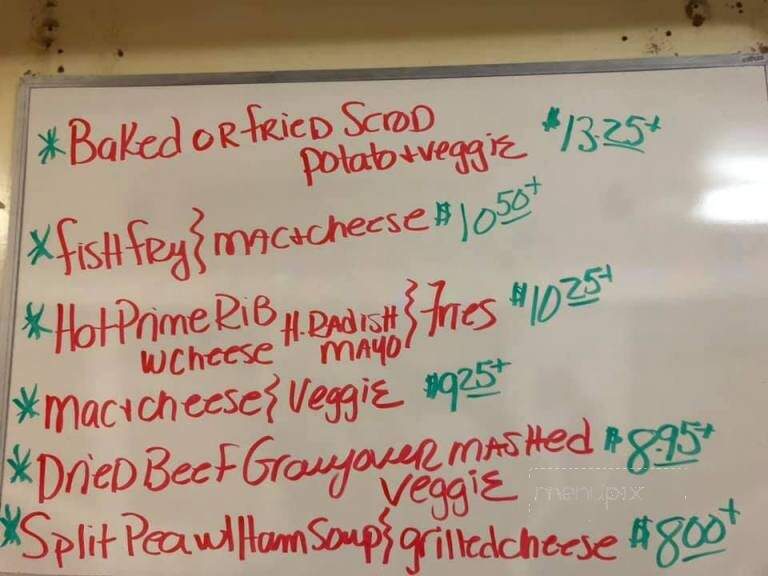 *Baked OR fried Scrod $13.25+
potato + veggie
*fish fry} mac + cheese $10 50+
*Hot Prime Rib H. Radish} fries $10 25+
w cheese mayo
*mac + cheese} Veggie $9 25+
*Dried Beef Gravy over mashed $8.95+
veggie
*Split Pea w/ Ham Soup} grilled cheese $8 00+
menupix